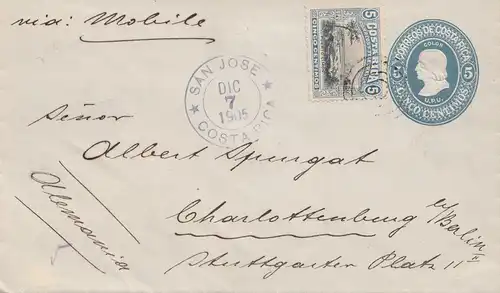 via: Mobile
5 COSTA RICA 5
CINCO CENTIMOS
CORREOS DE COSTA RICA
COLON
5 5
U.P.U.
CINCO CENTIMOS
SAN JOSE
DIC
7
1905
COSTA RICA
Señor
Albert Spungat
Alemania
Charlottenburg b/Berlin
Stuttgarter Platz 11 I